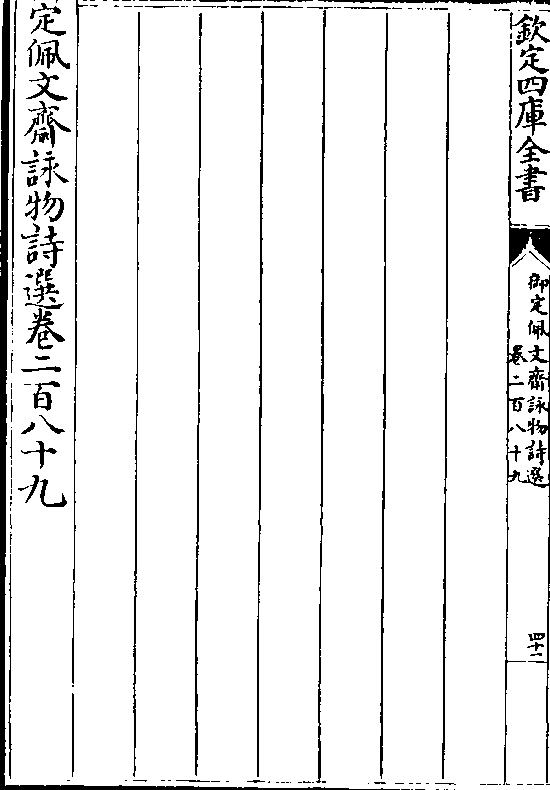 欽定四庫全書
御定佩文齋詠物詩選
卷二百八十九
四十一
定佩文齋詠物詩選卷二百八十九